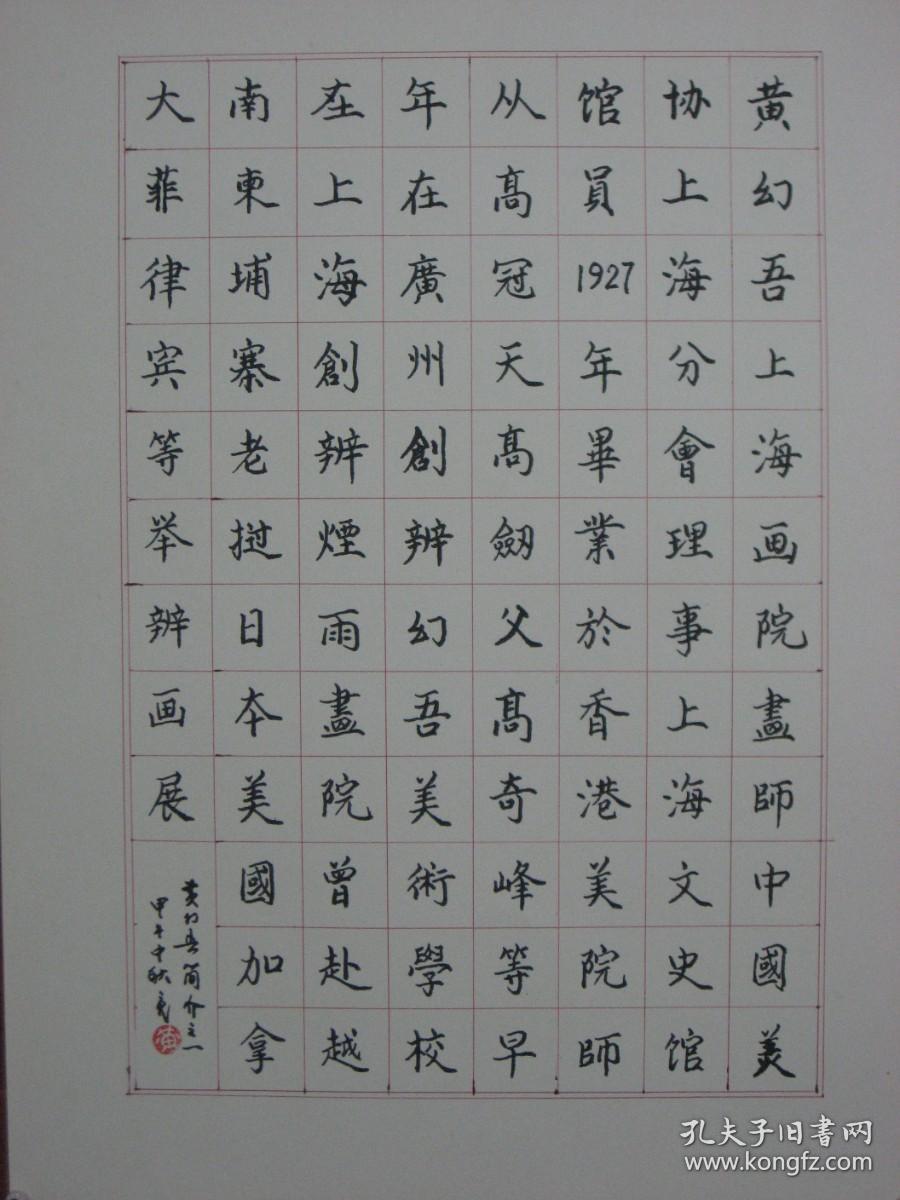 黄幻吾上海画院畫師中國美
协上海分會理事上海文史馆
馆員1927年畢業於香港美院師
从高冠天高劒父高奇峰等早
年在廣州創辦幻吾美術學校
在上海創辦煙雨畫院曾赴越
南柬埔寨老挝日本美國加拿
大菲律宾等举辦画展
黄幻吾简介之一
甲午中秋
孔夫子旧书网
www.kongfz.com